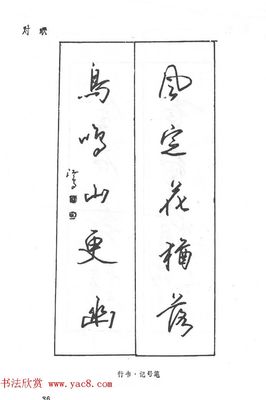 对联
风定花犹落
鸟鸣山更幽
行书·记号笔
书法欣赏 www.yac8.com
86